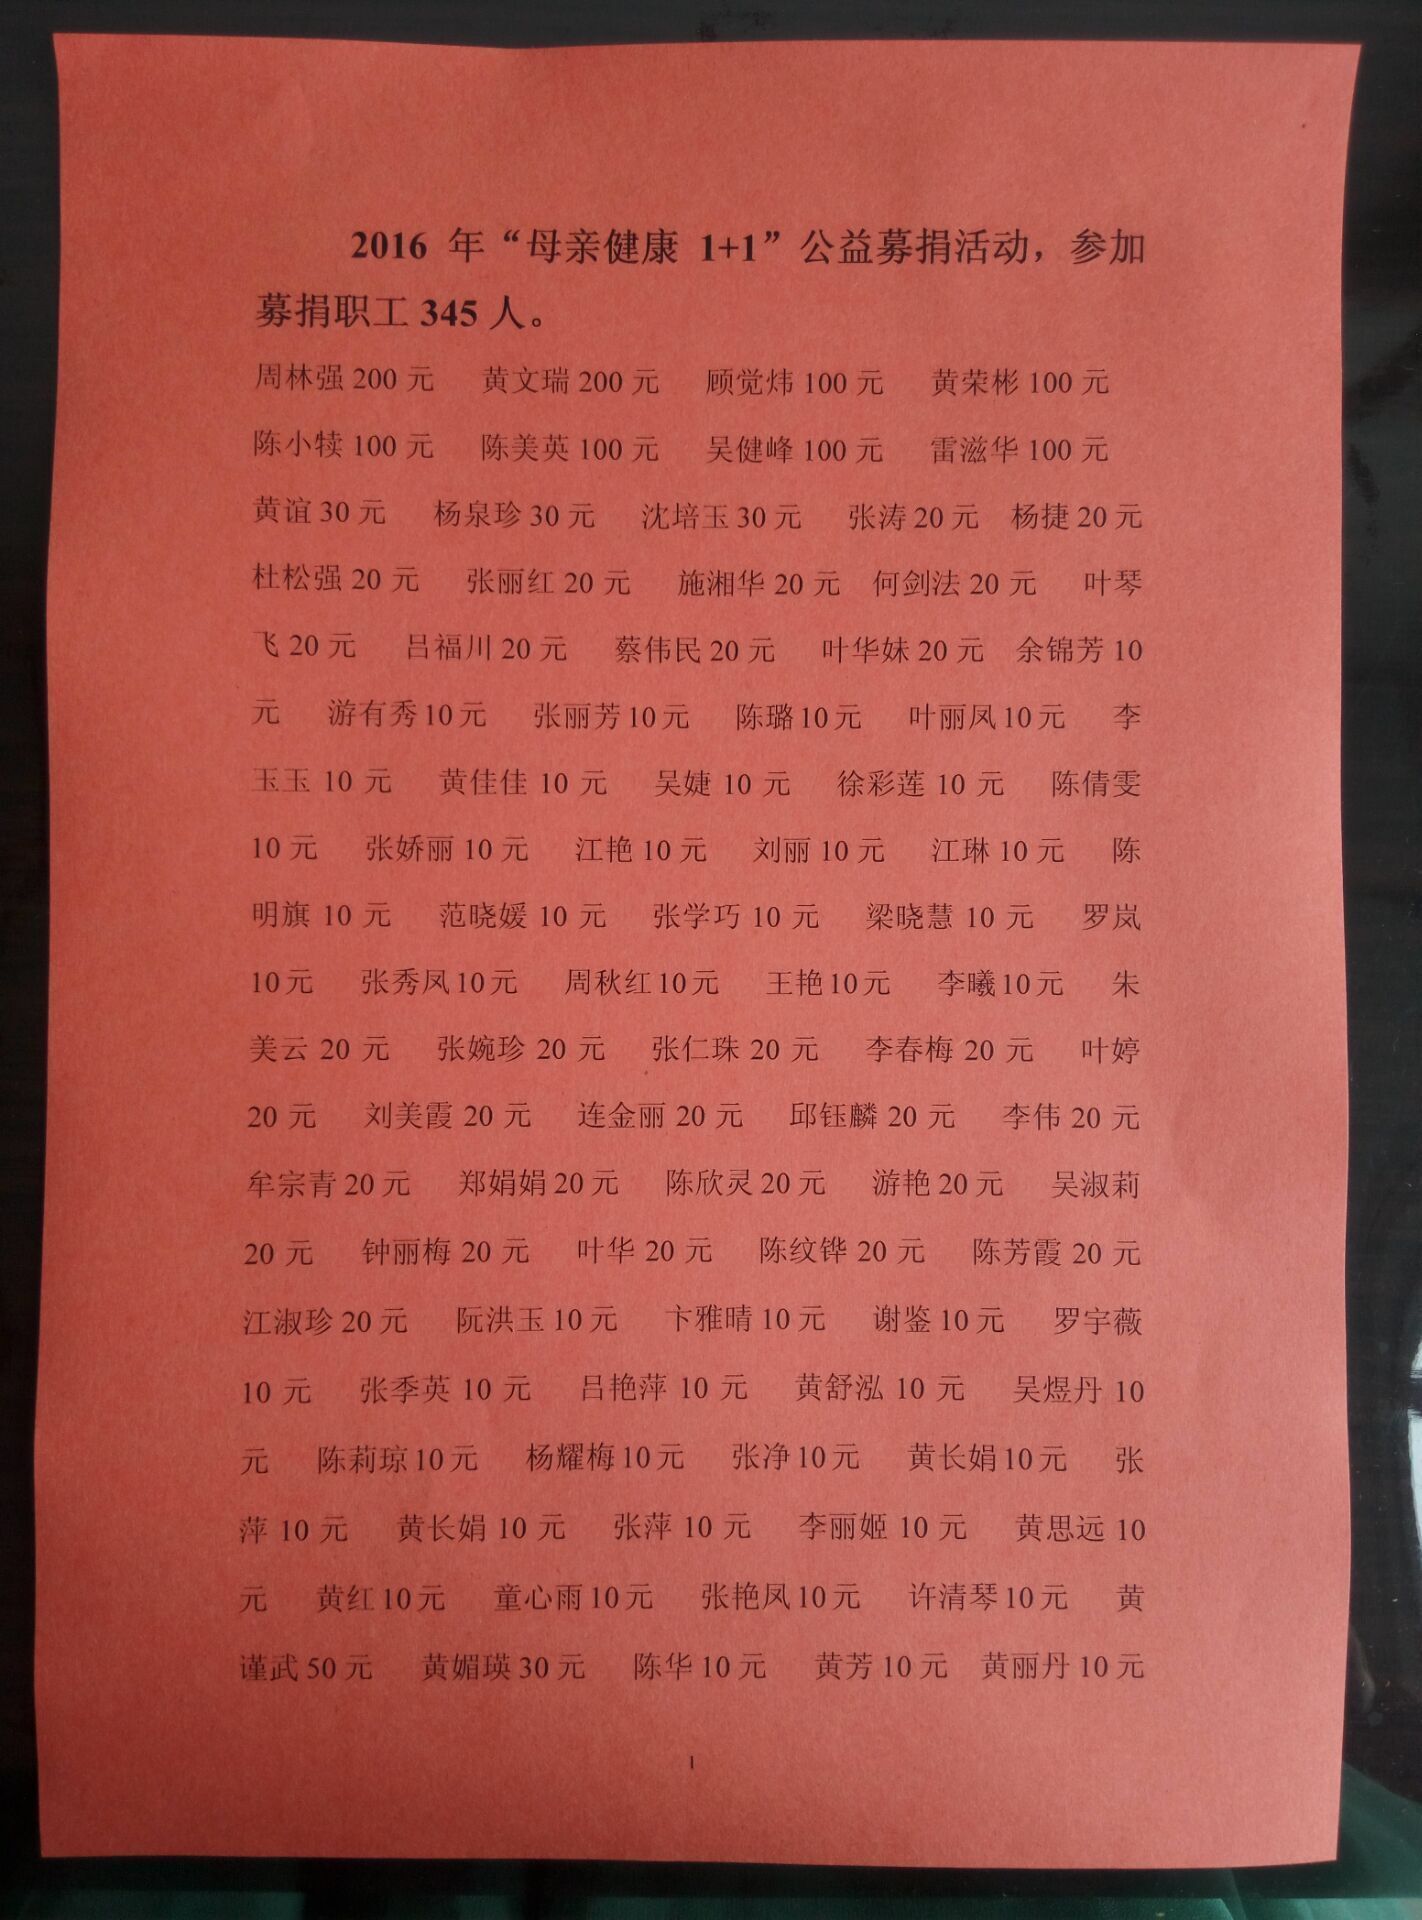 2016 年“母亲健康 1+1”公益募捐活动，参加
募捐职工 345 人。
周林强 200 元 黄文瑞 200 元 顾觉炜 100 元 黄荣彬 100 元
陈小犊 100 元 陈美英 100 元 吴健峰 100 元 雷滋华 100 元
黄谊 30 元 杨泉珍 30 元 沈培玉 30 元 张涛 20 元 杨捷 20 元
杜松强 20 元 张丽红 20 元 施湘华 20 元 何剑法 20 元 叶琴
飞 20 元 吕福川 20 元 蔡伟民 20 元 叶华妹 20 元 余锦芳 10
元 游有秀 10 元 张丽芳 10 元 陈璐 10 元 叶丽凤 10 元 李
玉玉 10 元 黄佳佳 10 元 吴婕 10 元 徐彩莲 10 元 陈倩雯
10 元 张娇丽 10 元 江艳 10 元 刘丽 10 元 江琳 10 元 陈
明旗 10 元 范晓媛 10 元 张学巧 10 元 梁晓慧 10 元 罗岚
10 元 张秀凤 10 元 周秋红 10 元 王艳 10 元 李曦 10 元 朱
美云 20 元 张婉珍 20 元 张仁珠 20 元 李春梅 20 元 叶婷
20 元 刘美霞 20 元 连金丽 20 元 邱钰麟 20 元 李伟 20 元
牟宗青 20 元 郑娟娟 20 元 陈欣灵 20 元 游艳 20 元 吴淑莉
20 元 钟丽梅 20 元 叶华 20 元 陈纹铧 20 元 陈芳霞 20 元
江淑珍 20 元 阮洪玉 10 元 卞雅晴 10 元 谢鉴 10 元 罗宇薇
10 元 张季英 10 元 吕艳萍 10 元 黄舒泓 10 元 吴煜丹 10
元 陈莉琼 10 元 杨耀梅 10 元 张净 10 元 黄长娟 10 元 张
萍 10 元 黄长娟 10 元 张萍 10 元 李丽姬 10 元 黄思远 10
元 黄红 10 元 童心雨 10 元 张艳凤 10 元 许清琴 10 元 黄
谨武 50 元 黄媚瑛 30 元 陈华 10 元 黄芳 10 元 黄丽丹 10 元
1